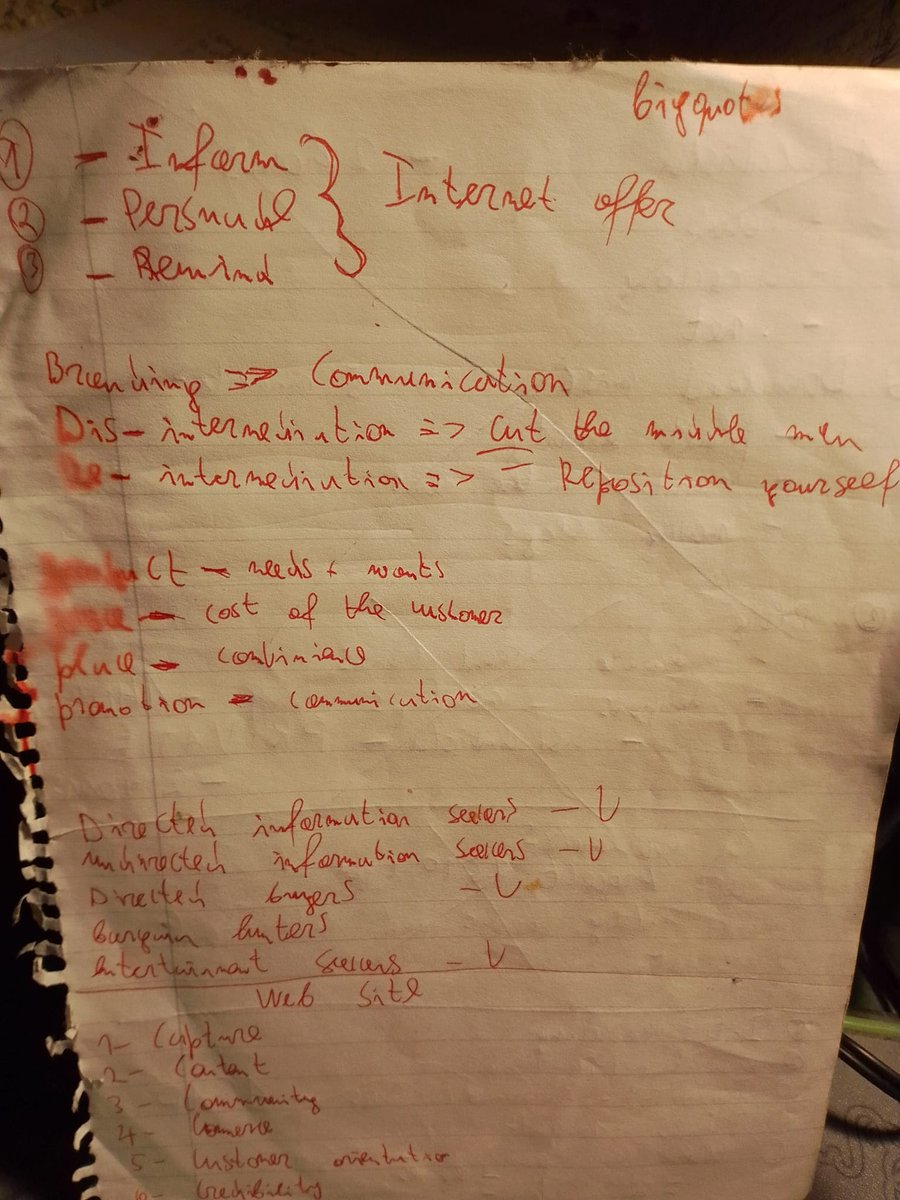 bigquots
① - Inform
② - Persuade } Internet offer
③ - Remind
Branding => Communication
Dis- intermediation => Cut the middle men
Re- intermediation => Reposition yourself
product - needs + wants
price - cost of the customer
place - convinience
promotion - communication
Directed information seekers - U
undirected information seekers - U
Directed buyers - U
bargain hunters
entertainment seekers - U
Web Site
1- Capture
2- Content
3- Community
4- Commerce
5- Customer orientation
6- Credibility